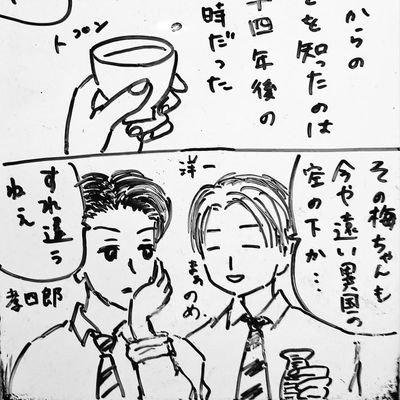 からの
とを知ったのは
十四年後の
時だった
その梅ちゃんも
今や遠い異国の
空の下か…
洋一
まぁ
のめ
すれ違う
ねえ
孝四郎